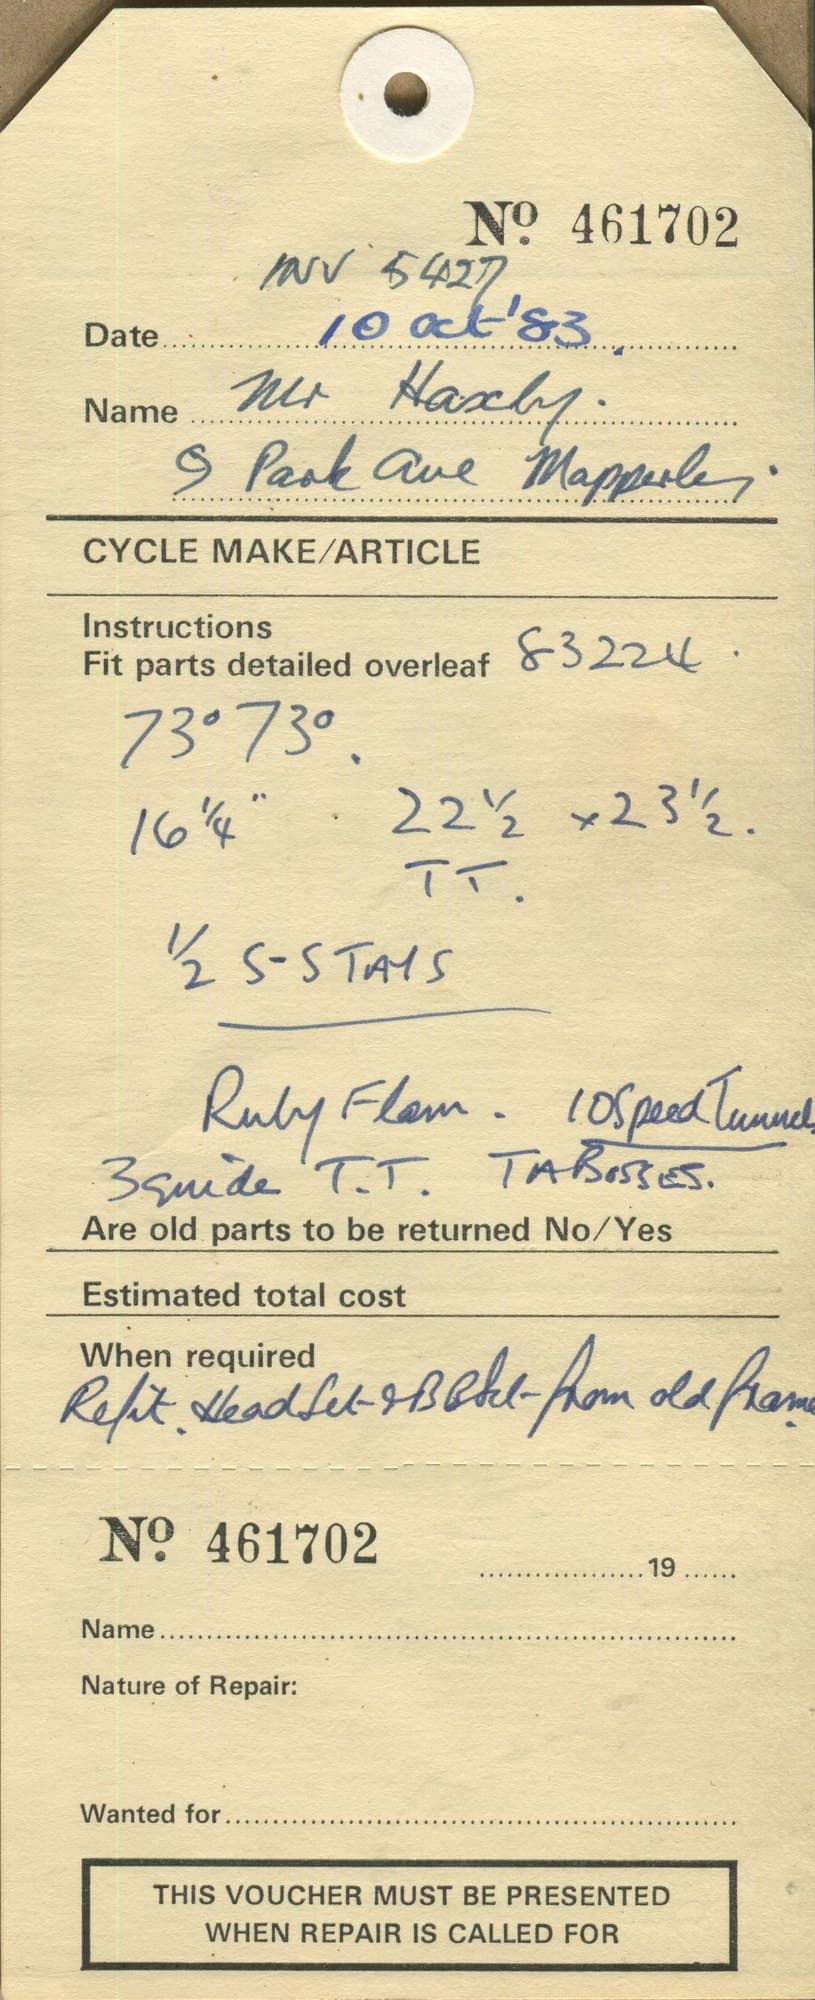 No. 461702
INV 5427
Date 10 Oct '83.
Name Mr Haxby.
9 Park Ave Mapperley.
CYCLE MAKE/ARTICLE
Instructions
Fit parts detailed overleaf 83224.
73° 73°.
16 1/4" 22 1/2 x 23 1/2.
TT.
1/2 S-STAYS
Ruby Flam. 10 Speed Tunnels
3 guide T.T. TA BOSSES.
Are old parts to be returned No/Yes
Estimated total cost
When required
Refit. Head Set & BB Set from old frame.
No. 461702
19
Name
Nature of Repair:
Wanted for
THIS VOUCHER MUST BE PRESENTED
WHEN REPAIR IS CALLED FOR